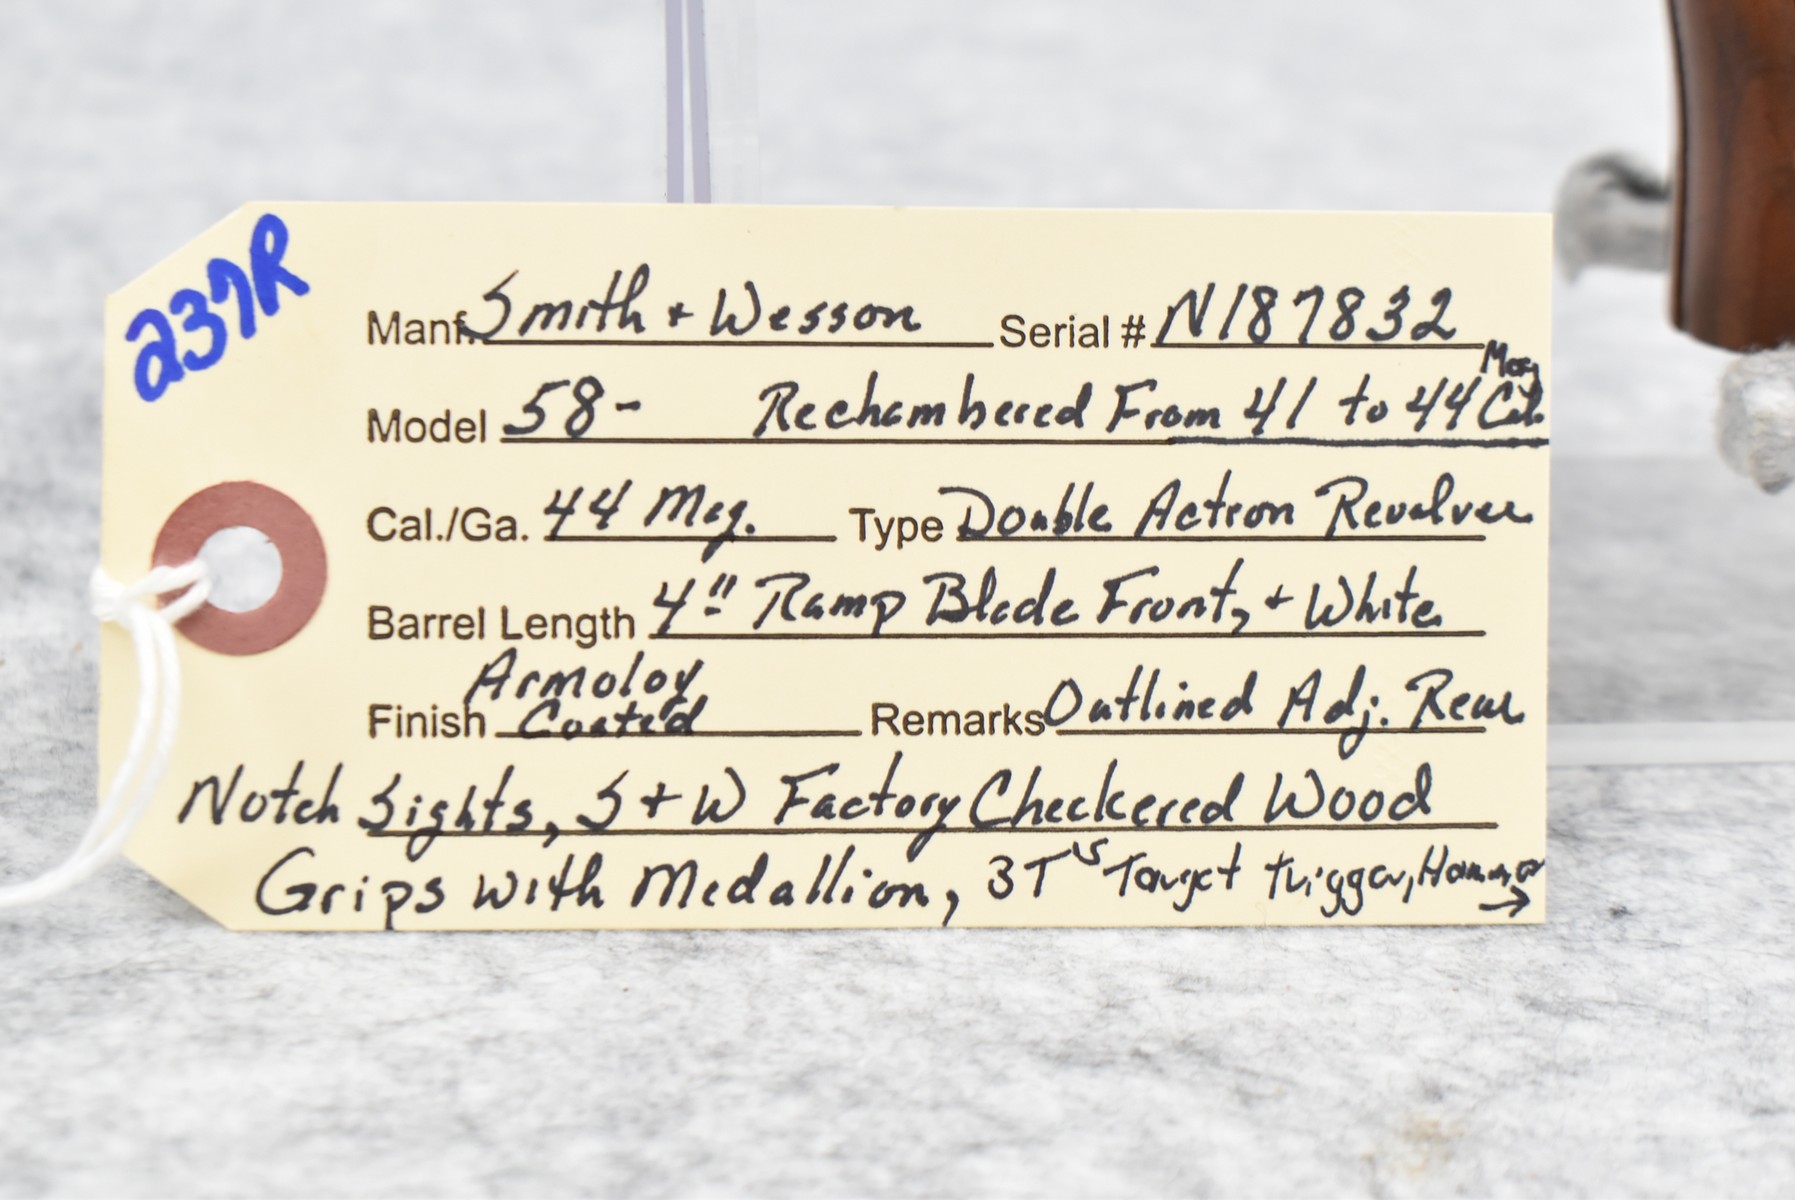 237R
Manf. Smith + Wesson Serial # N187832
Model 58- Rechambered From 41 to 44 Mag Cal.
Cal./Ga. 44 Mag. Type Double Action Revolver
Barrel Length 4" Ramp Blade Front, + White
Finish Armoloy Coated Remarks Outlined Adj. Rear
Notch Sights, S + W Factory Checkered Wood
Grips with Medallion, 3T's Target trigger, Hammer →